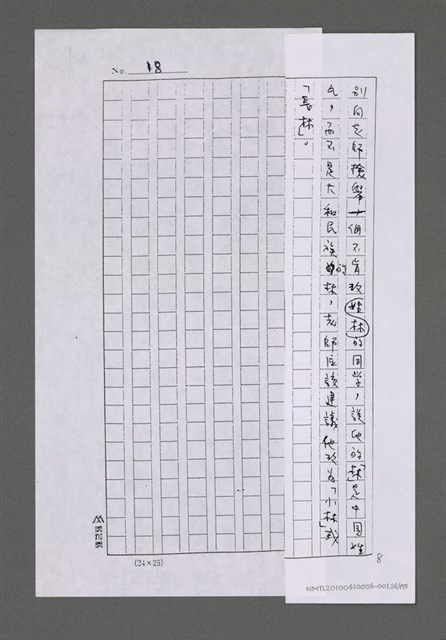 No. 18
別向老師檢舉一個不肯改姓林的同學，說他的「林」是中國姓
氏，而不是大和民族的林，老師應該建議他改為「小林」或
「林」。
8
(24×25)